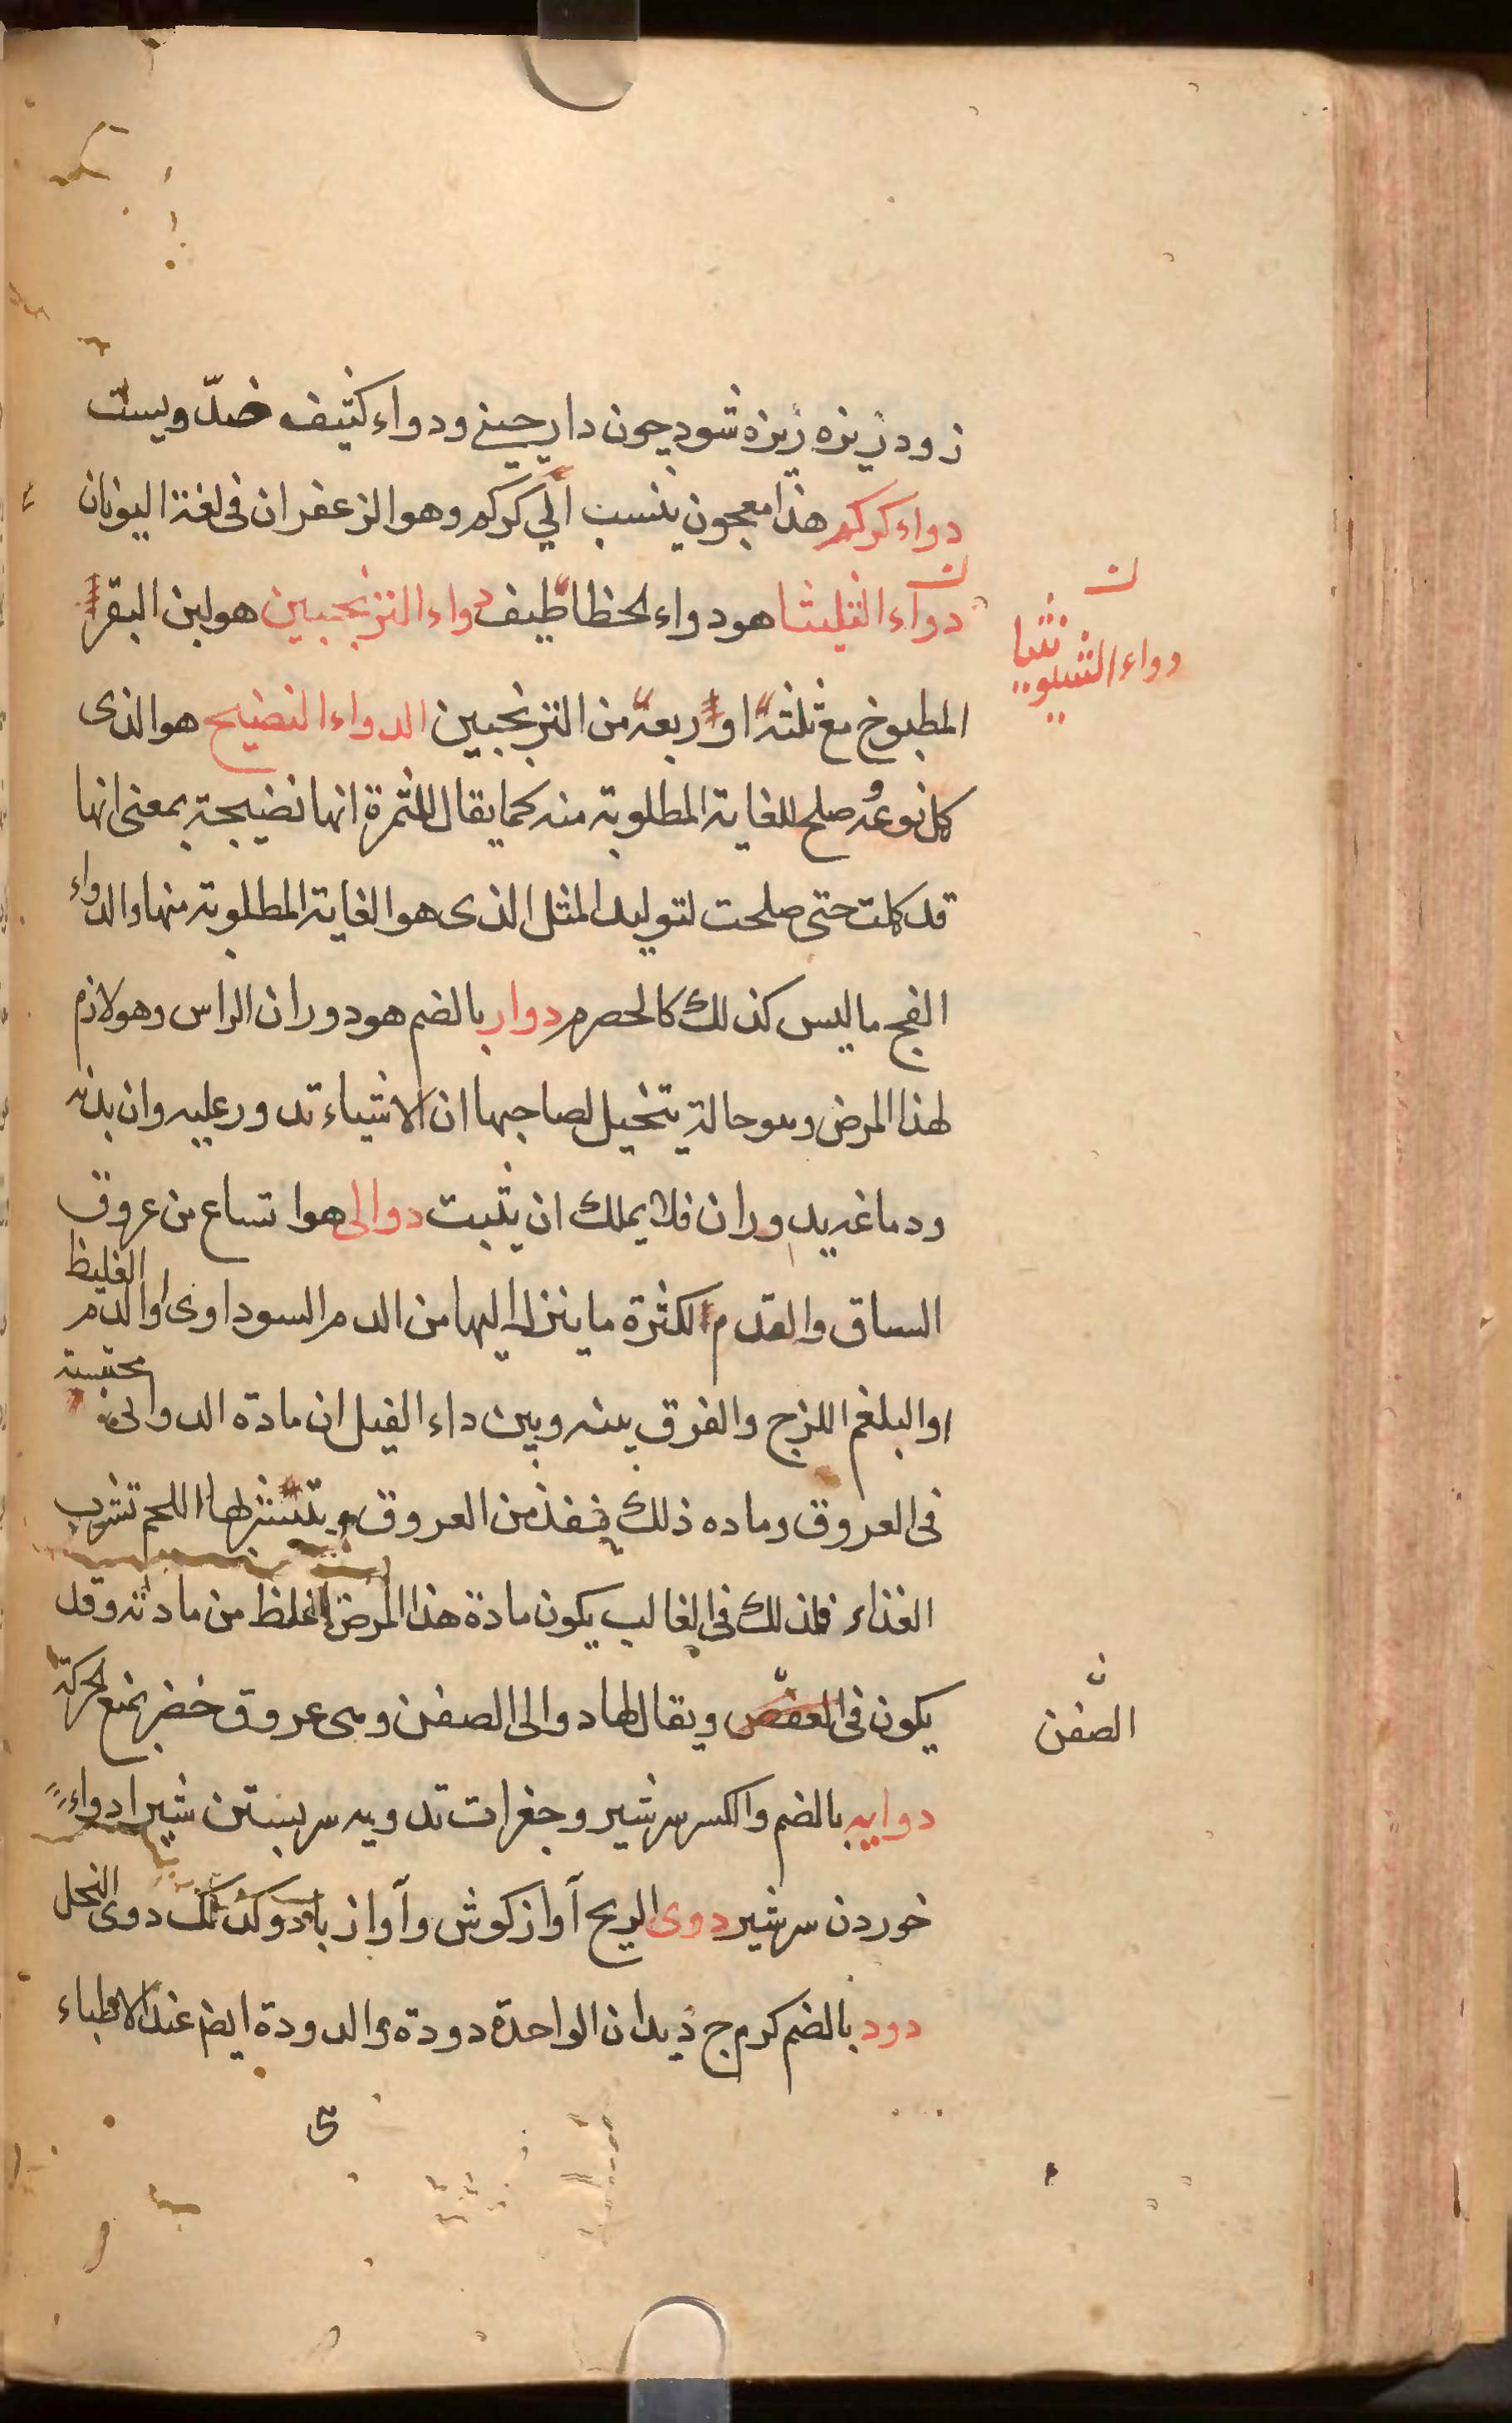 زود ریزه ریزه شود چون دارچینی ودواء کثیف ضدّ ویست
دواء کرکم هذا معجون ینسب الی کرکم وهو الزعفران فی لغة الیونان
دواء الثلیثا هو دواء لحظاطیف دواء الترنجبین هو لبن البقر
دواء الشبویثیا
المطبوخ مع ثلثة او ربعة من الترنجبین الدواء النضیج هو الذی
کمل نوعه وصلح للغایة المطلوبة منه کما یقال للثمرة انها نضیجة بمعنی انها
قد کملت حتی صلحت لتولید المثل الذی هو الغایة المطلوبة منها والدواء
الفج ما لیس کذلك کالحصرم دوار بالضم هو دوران الراس وهو لازم
لهذا المرض وهو حالة یتخیل لصاحبها ان الاشیاء تدور علیه وان بدنه
ودماغه یدوران فلا یملك ان یثبت دوالی هو اتساع من عروق
الساق والقدم لکثرة ما ینزل الیها من الدم السوداوی او الدم الغلیظ
او البلغم اللزج والفرق بینه وبین داء الفیل ان مادة الدوالی محتبسة
فی العروق وماده ذلك ینفذ من العروق و یتشربها اللحم تشرب
الغذاء فلذلك فی الغالب یکون مادة هذا المرض اغلظ من مادته وقد
یکون فی العفص ویقال لها دوالی الصفن وهی عروق خضر یمنع الحرکة
الصفن
دوایه بالضم والکسر سرشیر وجغرات تدویه سر بستن شیر ادواء
خوردن سرشیر دوی الریح آواز کوش وآواز باد وکذلك دوی النحل
دود بالضم کرم ج دیدان الواحدة دودة والدودة ایضا عند الاطباء